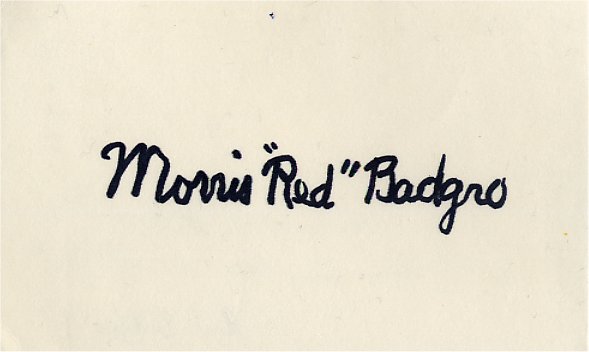 Morris "Red" Badgro